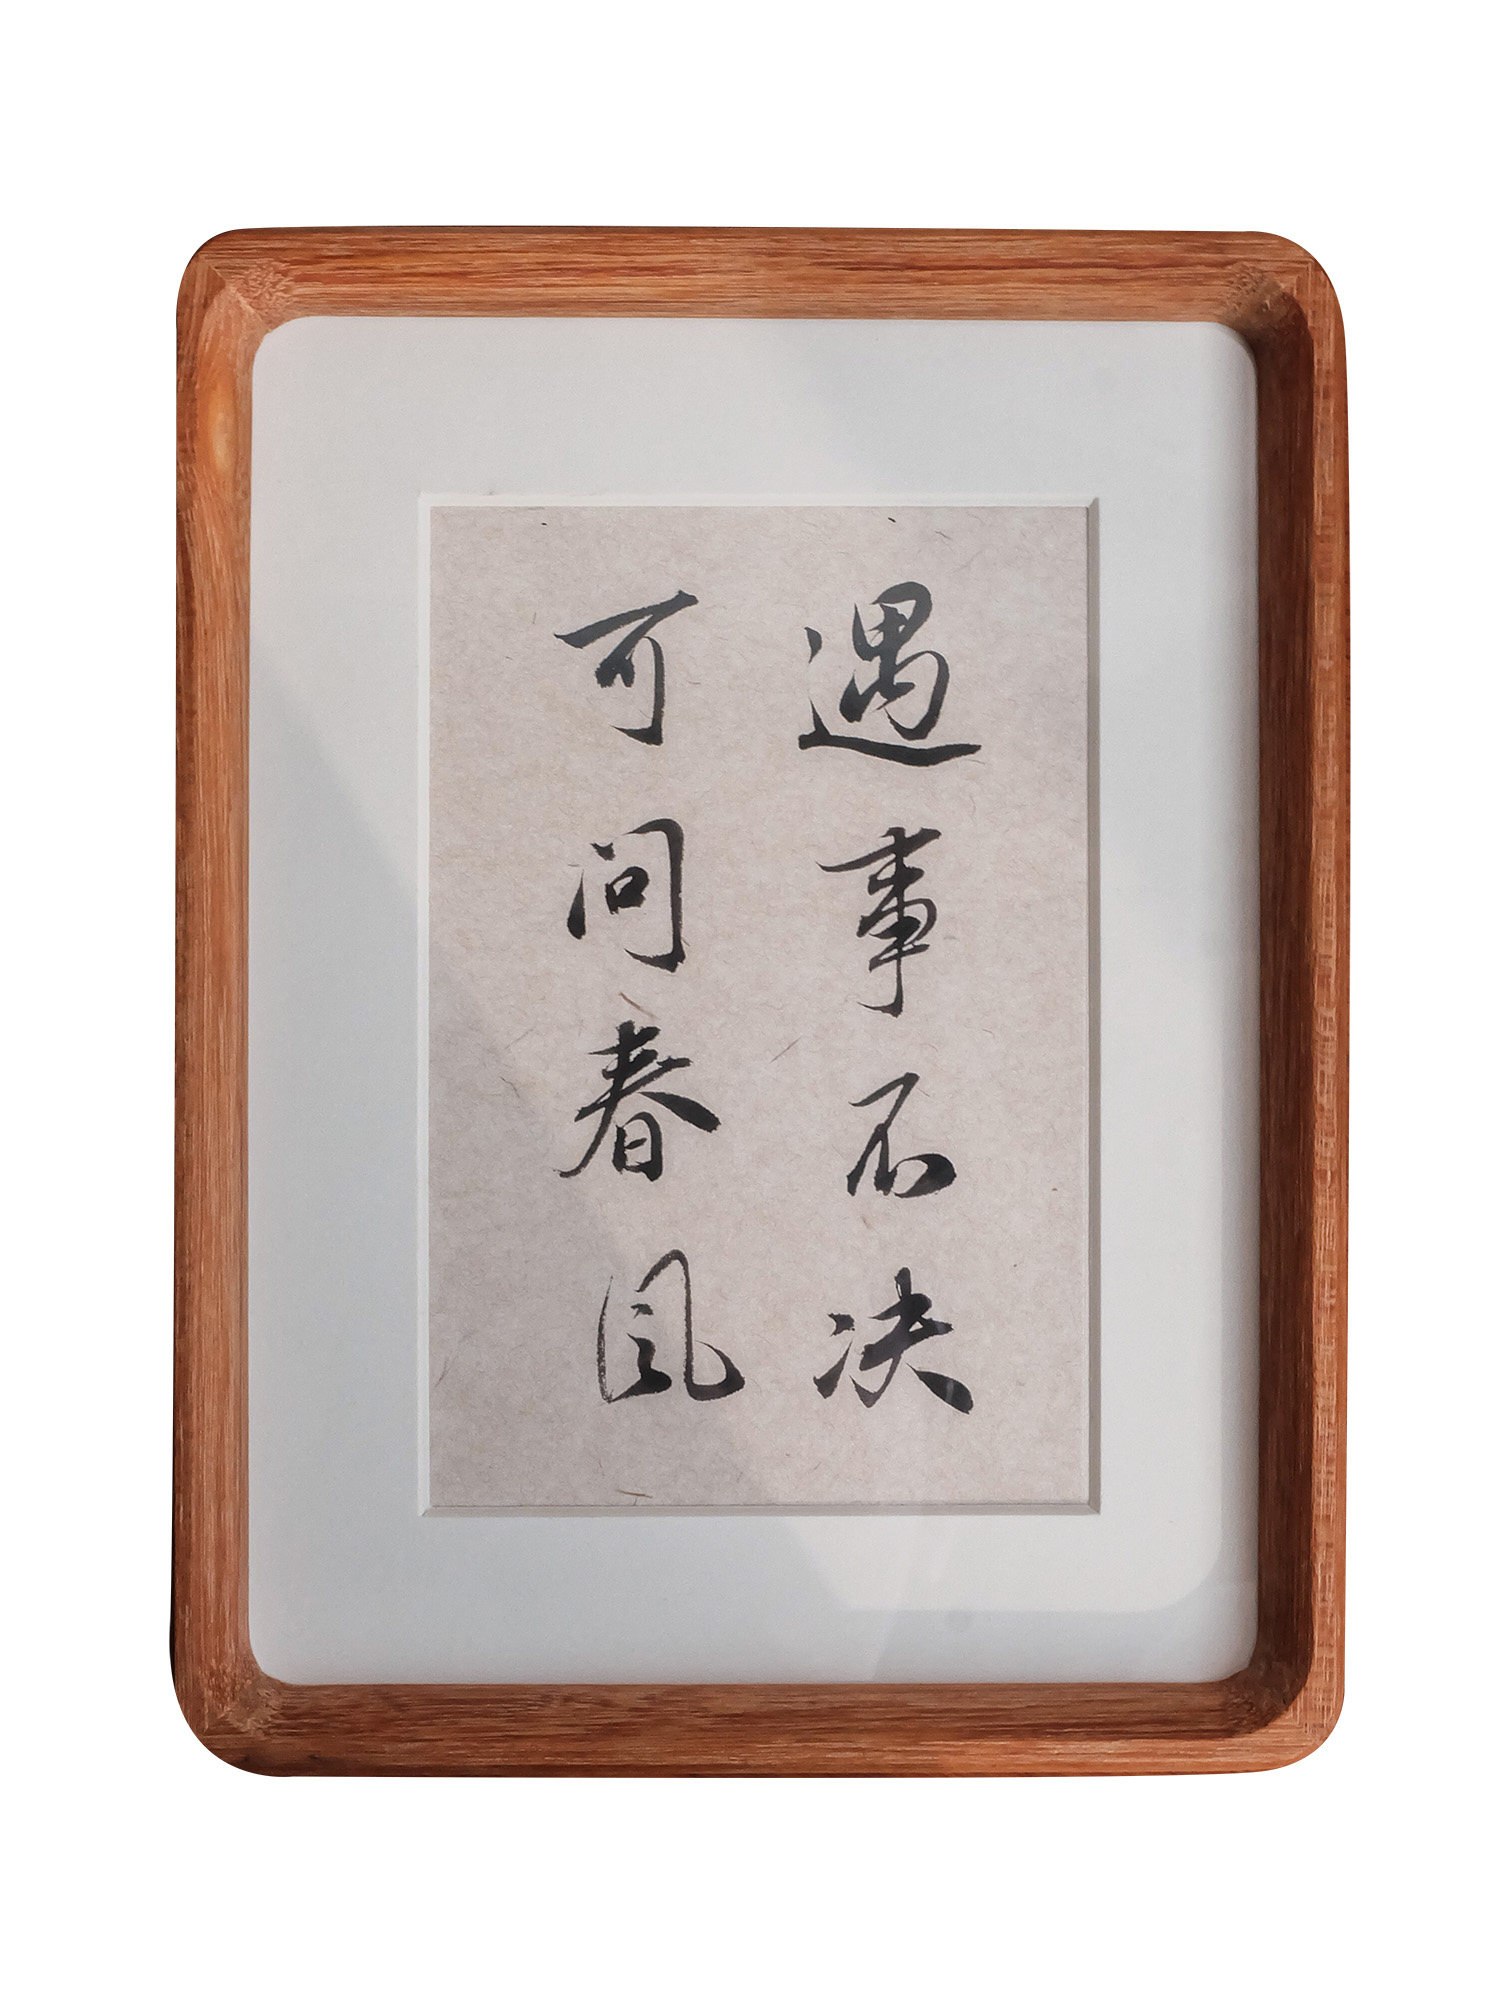 遇事不决
可问春风